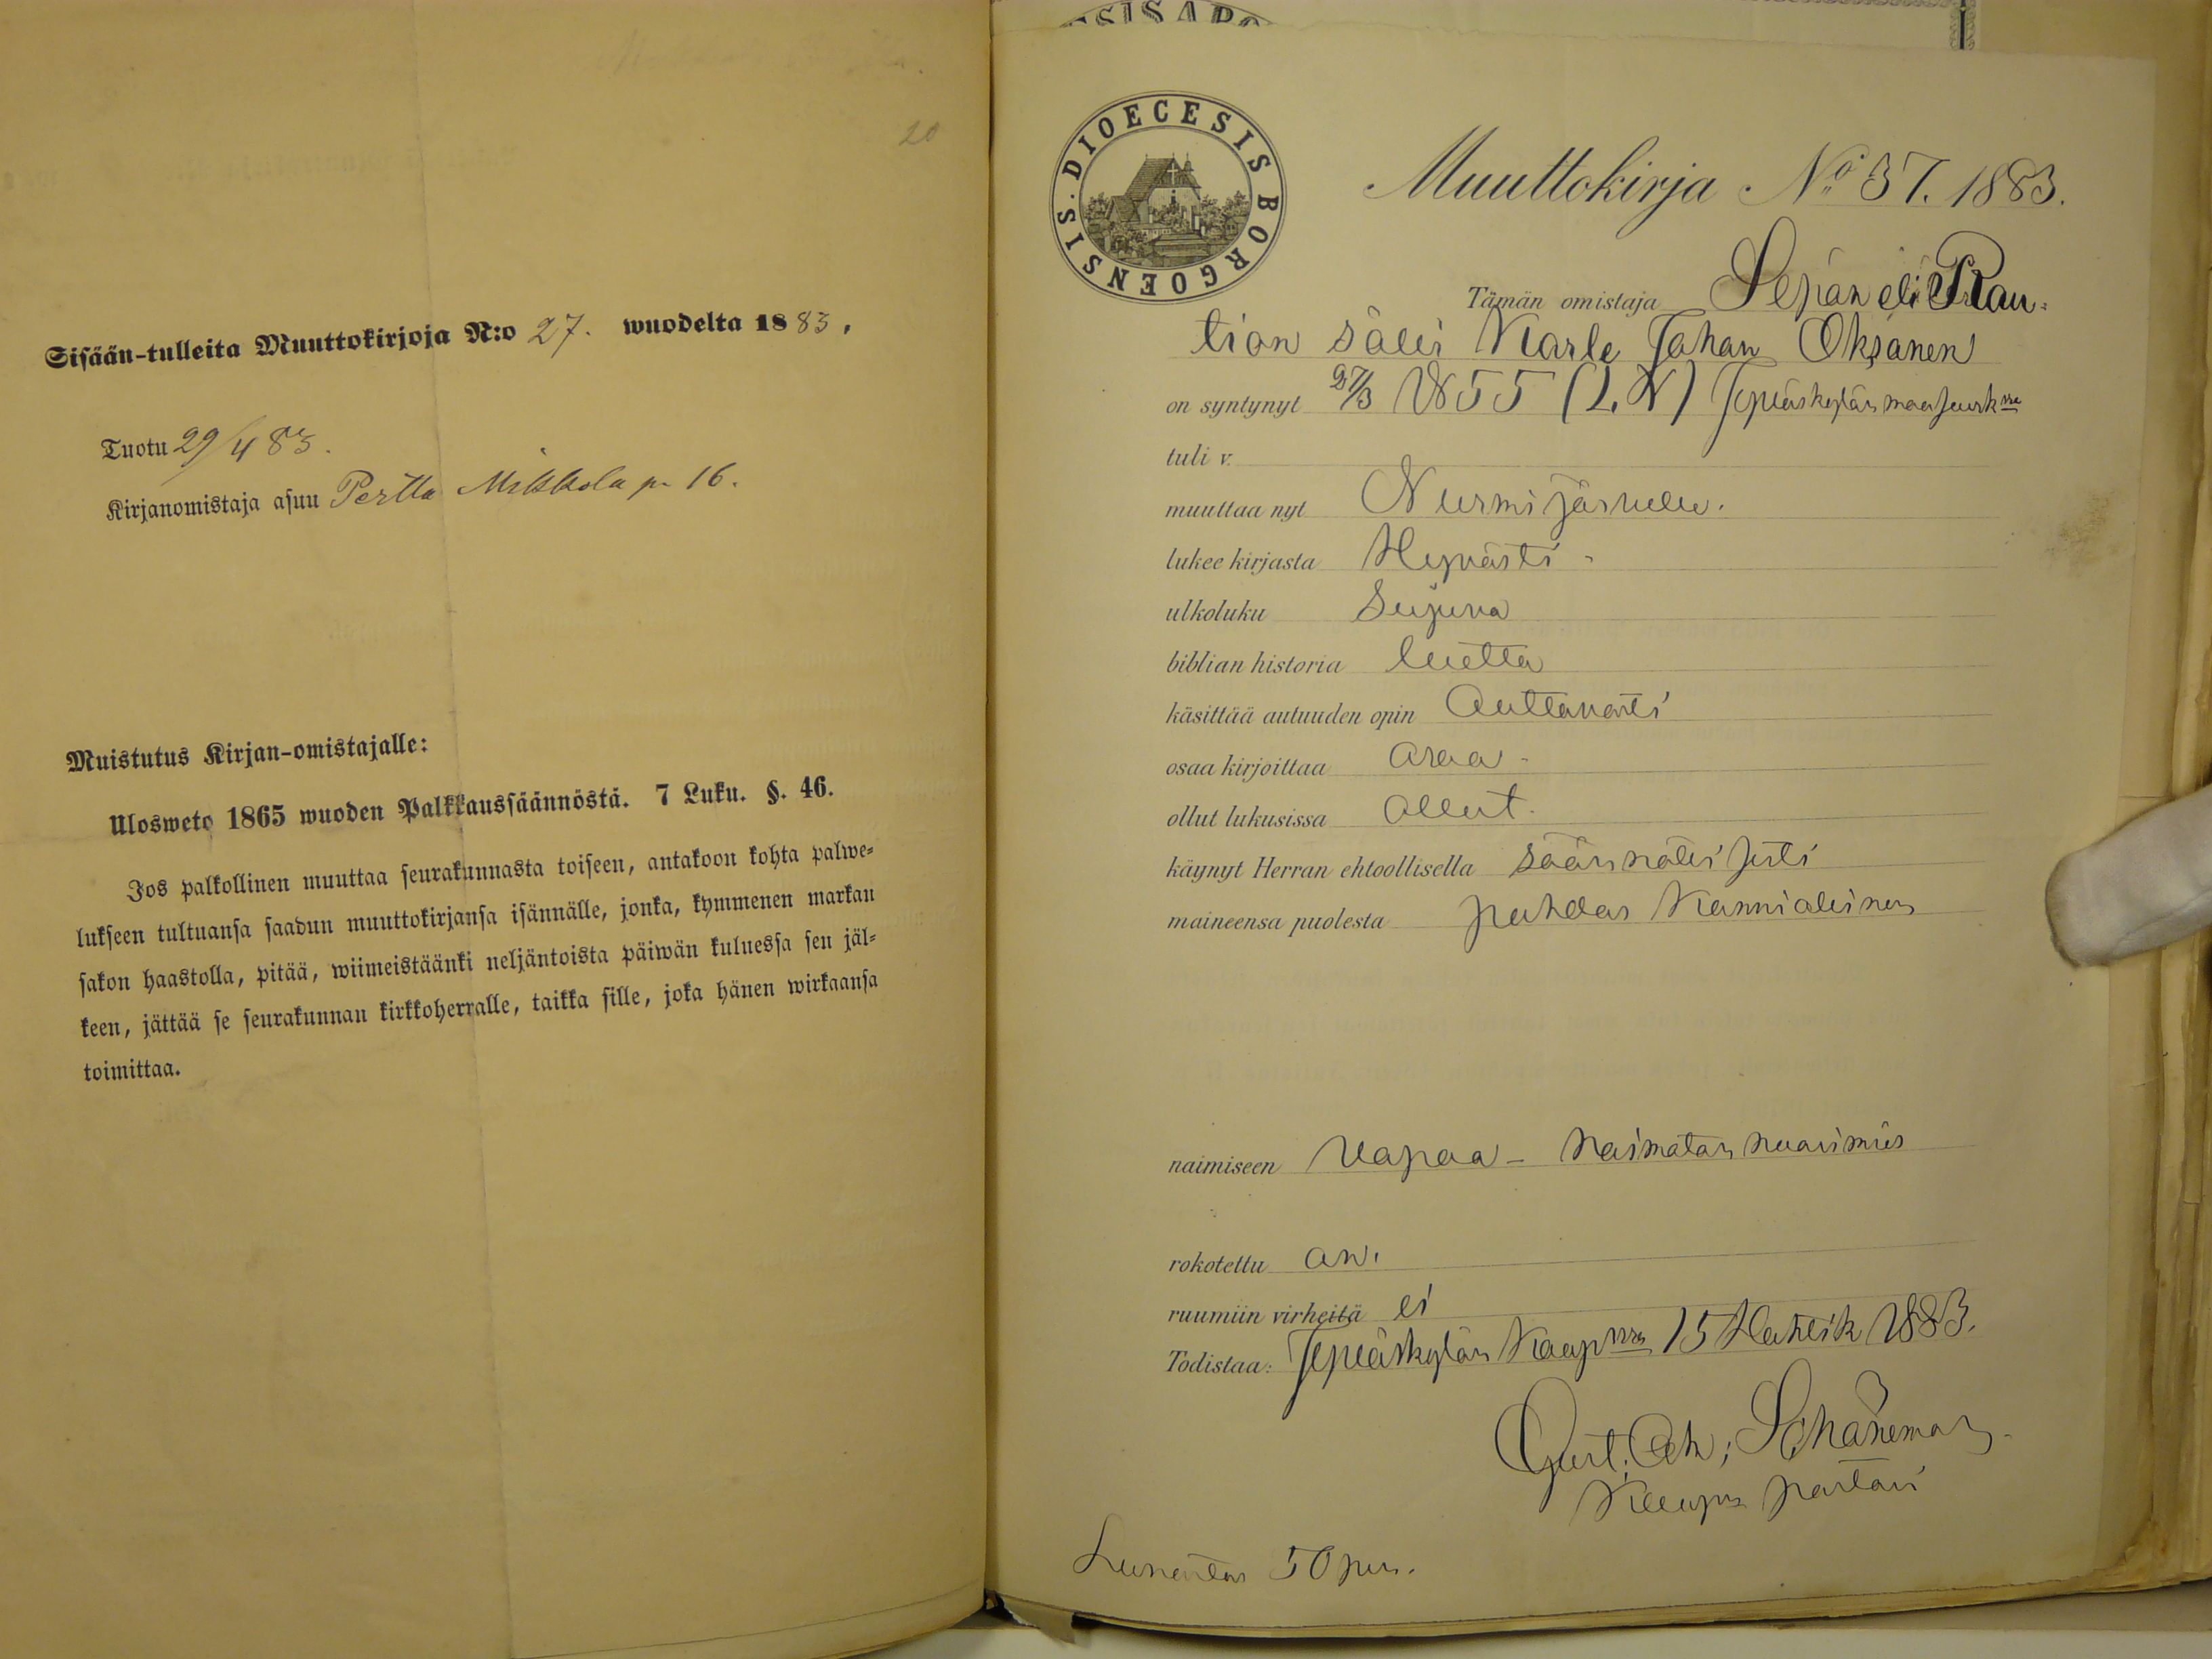 20
Sisään-tulleita Muuttokirjoja N:o 27. wuodelta 1883.
Tuotu 29/4 83.
Kirjanomistaja asuu Perttu Mikkola p. 16.
Muistutus Kirjan-omistajalle:
Ulosweto 1865 wuoden Palkkaussäännöstä. 7 Luku. §. 46.
Jos palkollinen muuttaa seurakunnasta toiseen, antakoon kohta palwe-
lukseen tultuansa saadun muuttokirjansa isännälle, jonka, kymmenen markan
sakon haastolla, pitää, wiimeistäänki neljäntoista päiwän kuluessa sen jäl-
keen, jättää se seurakunnan kirkkoherralle, taikka sille, joka hänen wirkaansa
toimittaa.
DIOECESIS BORGOENSIS.
Muuttokirja No 37. 1883.
Tämän omistaja Sepän eli Rau-
tion sälli Karle Johan Oksanen
on syntynyt 27/3 1855 Jyväskylän maaseurk
tuli v.
muuttaa nyt Nurmijärvelle.
lukee kirjasta Hyvästi
ulkoluku Sujuva
biblian historia luettu
käsittää autuuden opin Auttavasti
osaa kirjoittaa osaa
ollut lukusissa ollut.
käynyt Herran ehtoollisella säännöllisesti
maineensa puolesta puhdas kunniallinen
naimiseen Vapaa - Naimaton nuorimies
rokotettu on.
ruumiin virheitä ei
Todistaa: Jyväskylän Kaup 15 Huhtik 1883.
Gust. Ad. Schöneman
Kaup pastori
Lunastus 50 pen.